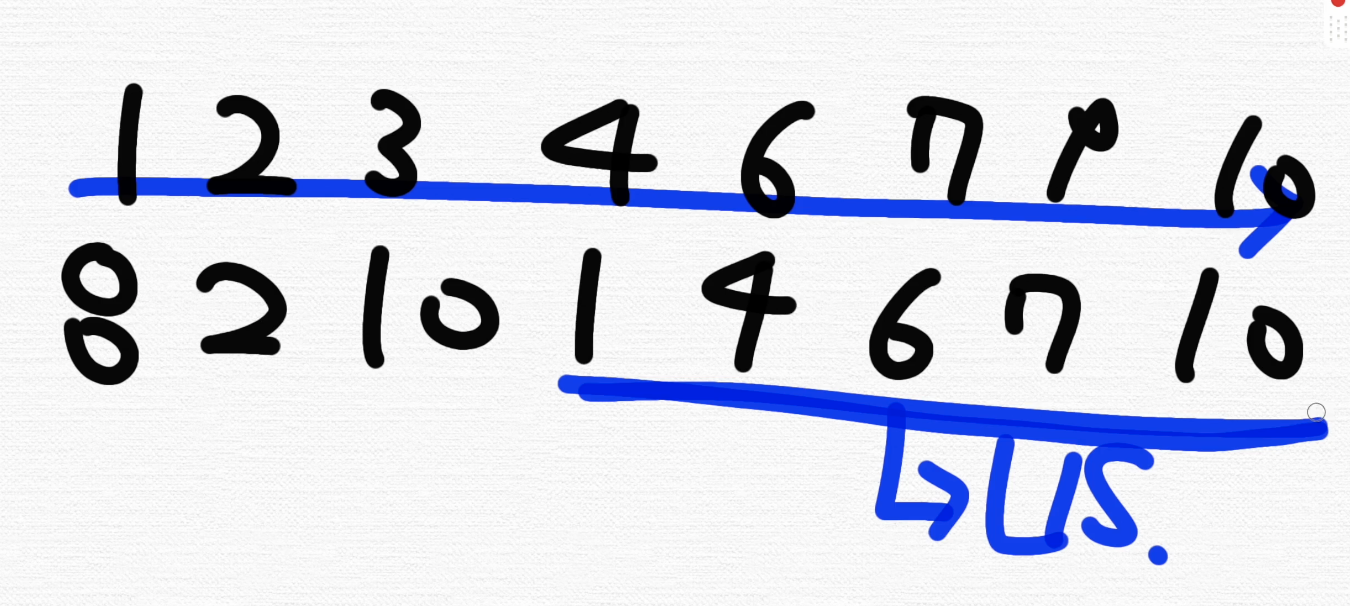 1 2 3 4 6 7 9 10
8 2 10 1 4 6 7 10
↳ LIS.